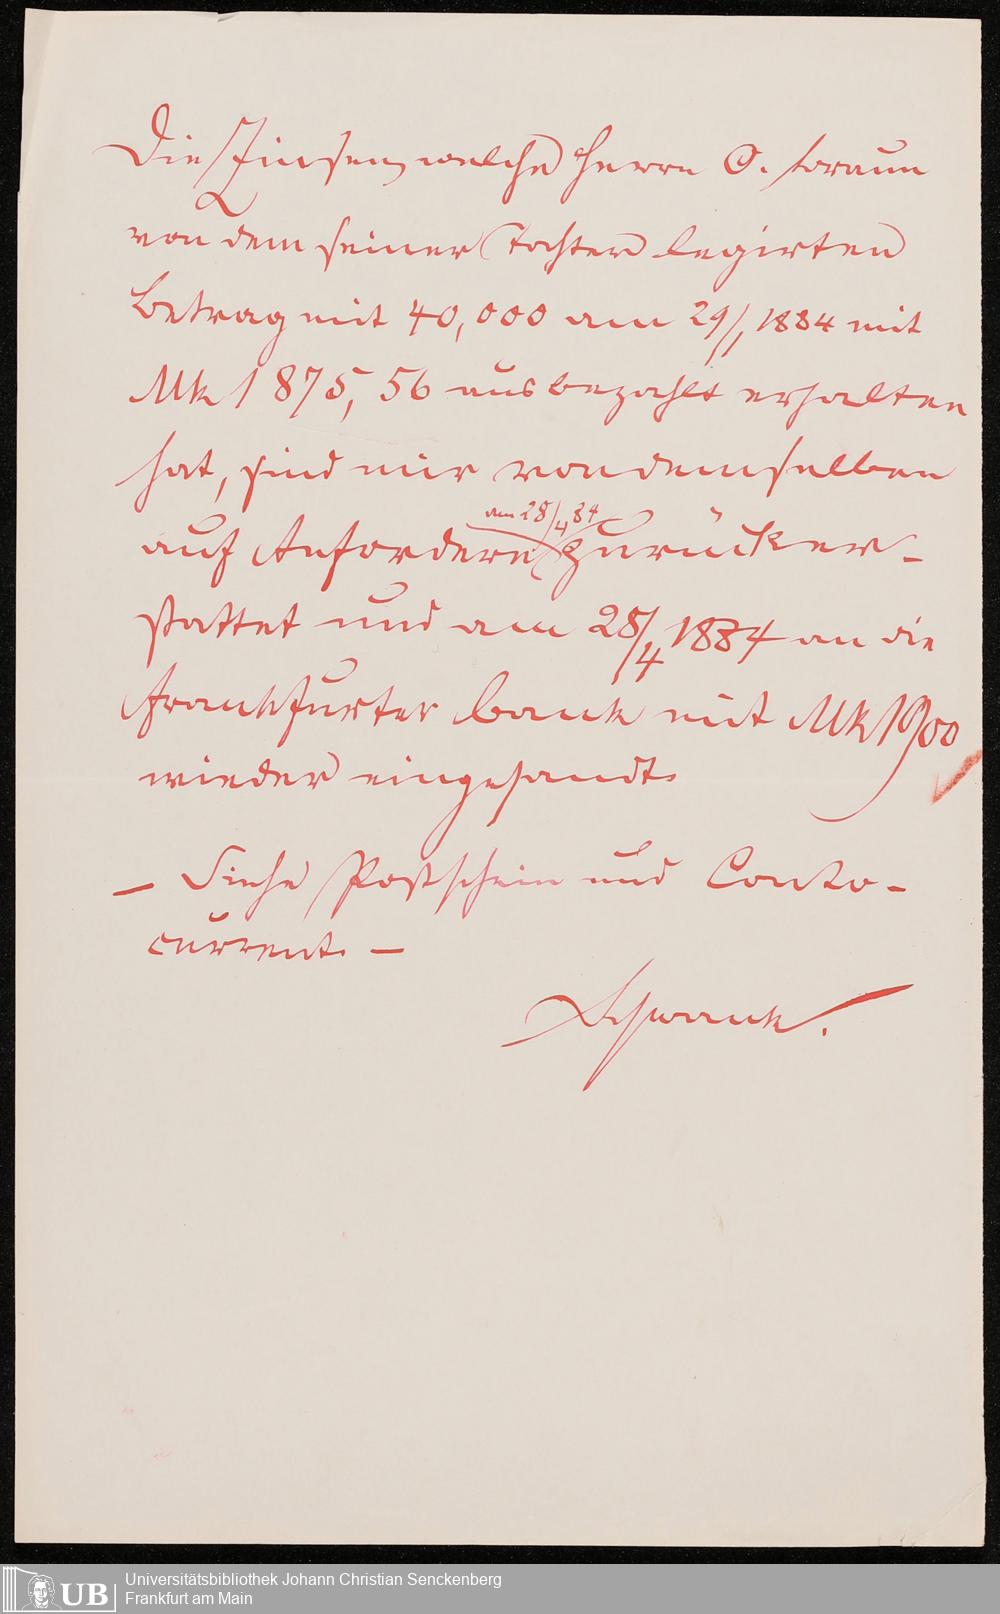 Die Zinsen welche Herrn O. Braun
von dem seiner Tochter legirten
Betrag mit 40,000 am 29/1 1884 mit
Mk 1875,56 ausbezahlt erhalten
hat, sind mir von demselben
auf Anfordern am 28/4 84 zurücker-
stattet und am 28/4 1884 an die
Frankfurter Bank mit Mk 1900
wieder eingesandt.
— Siehe Postschein und Conto-
current. —
Schwank.
UB
Universitätsbibliothek Johann Christian Senckenberg
Frankfurt am Main